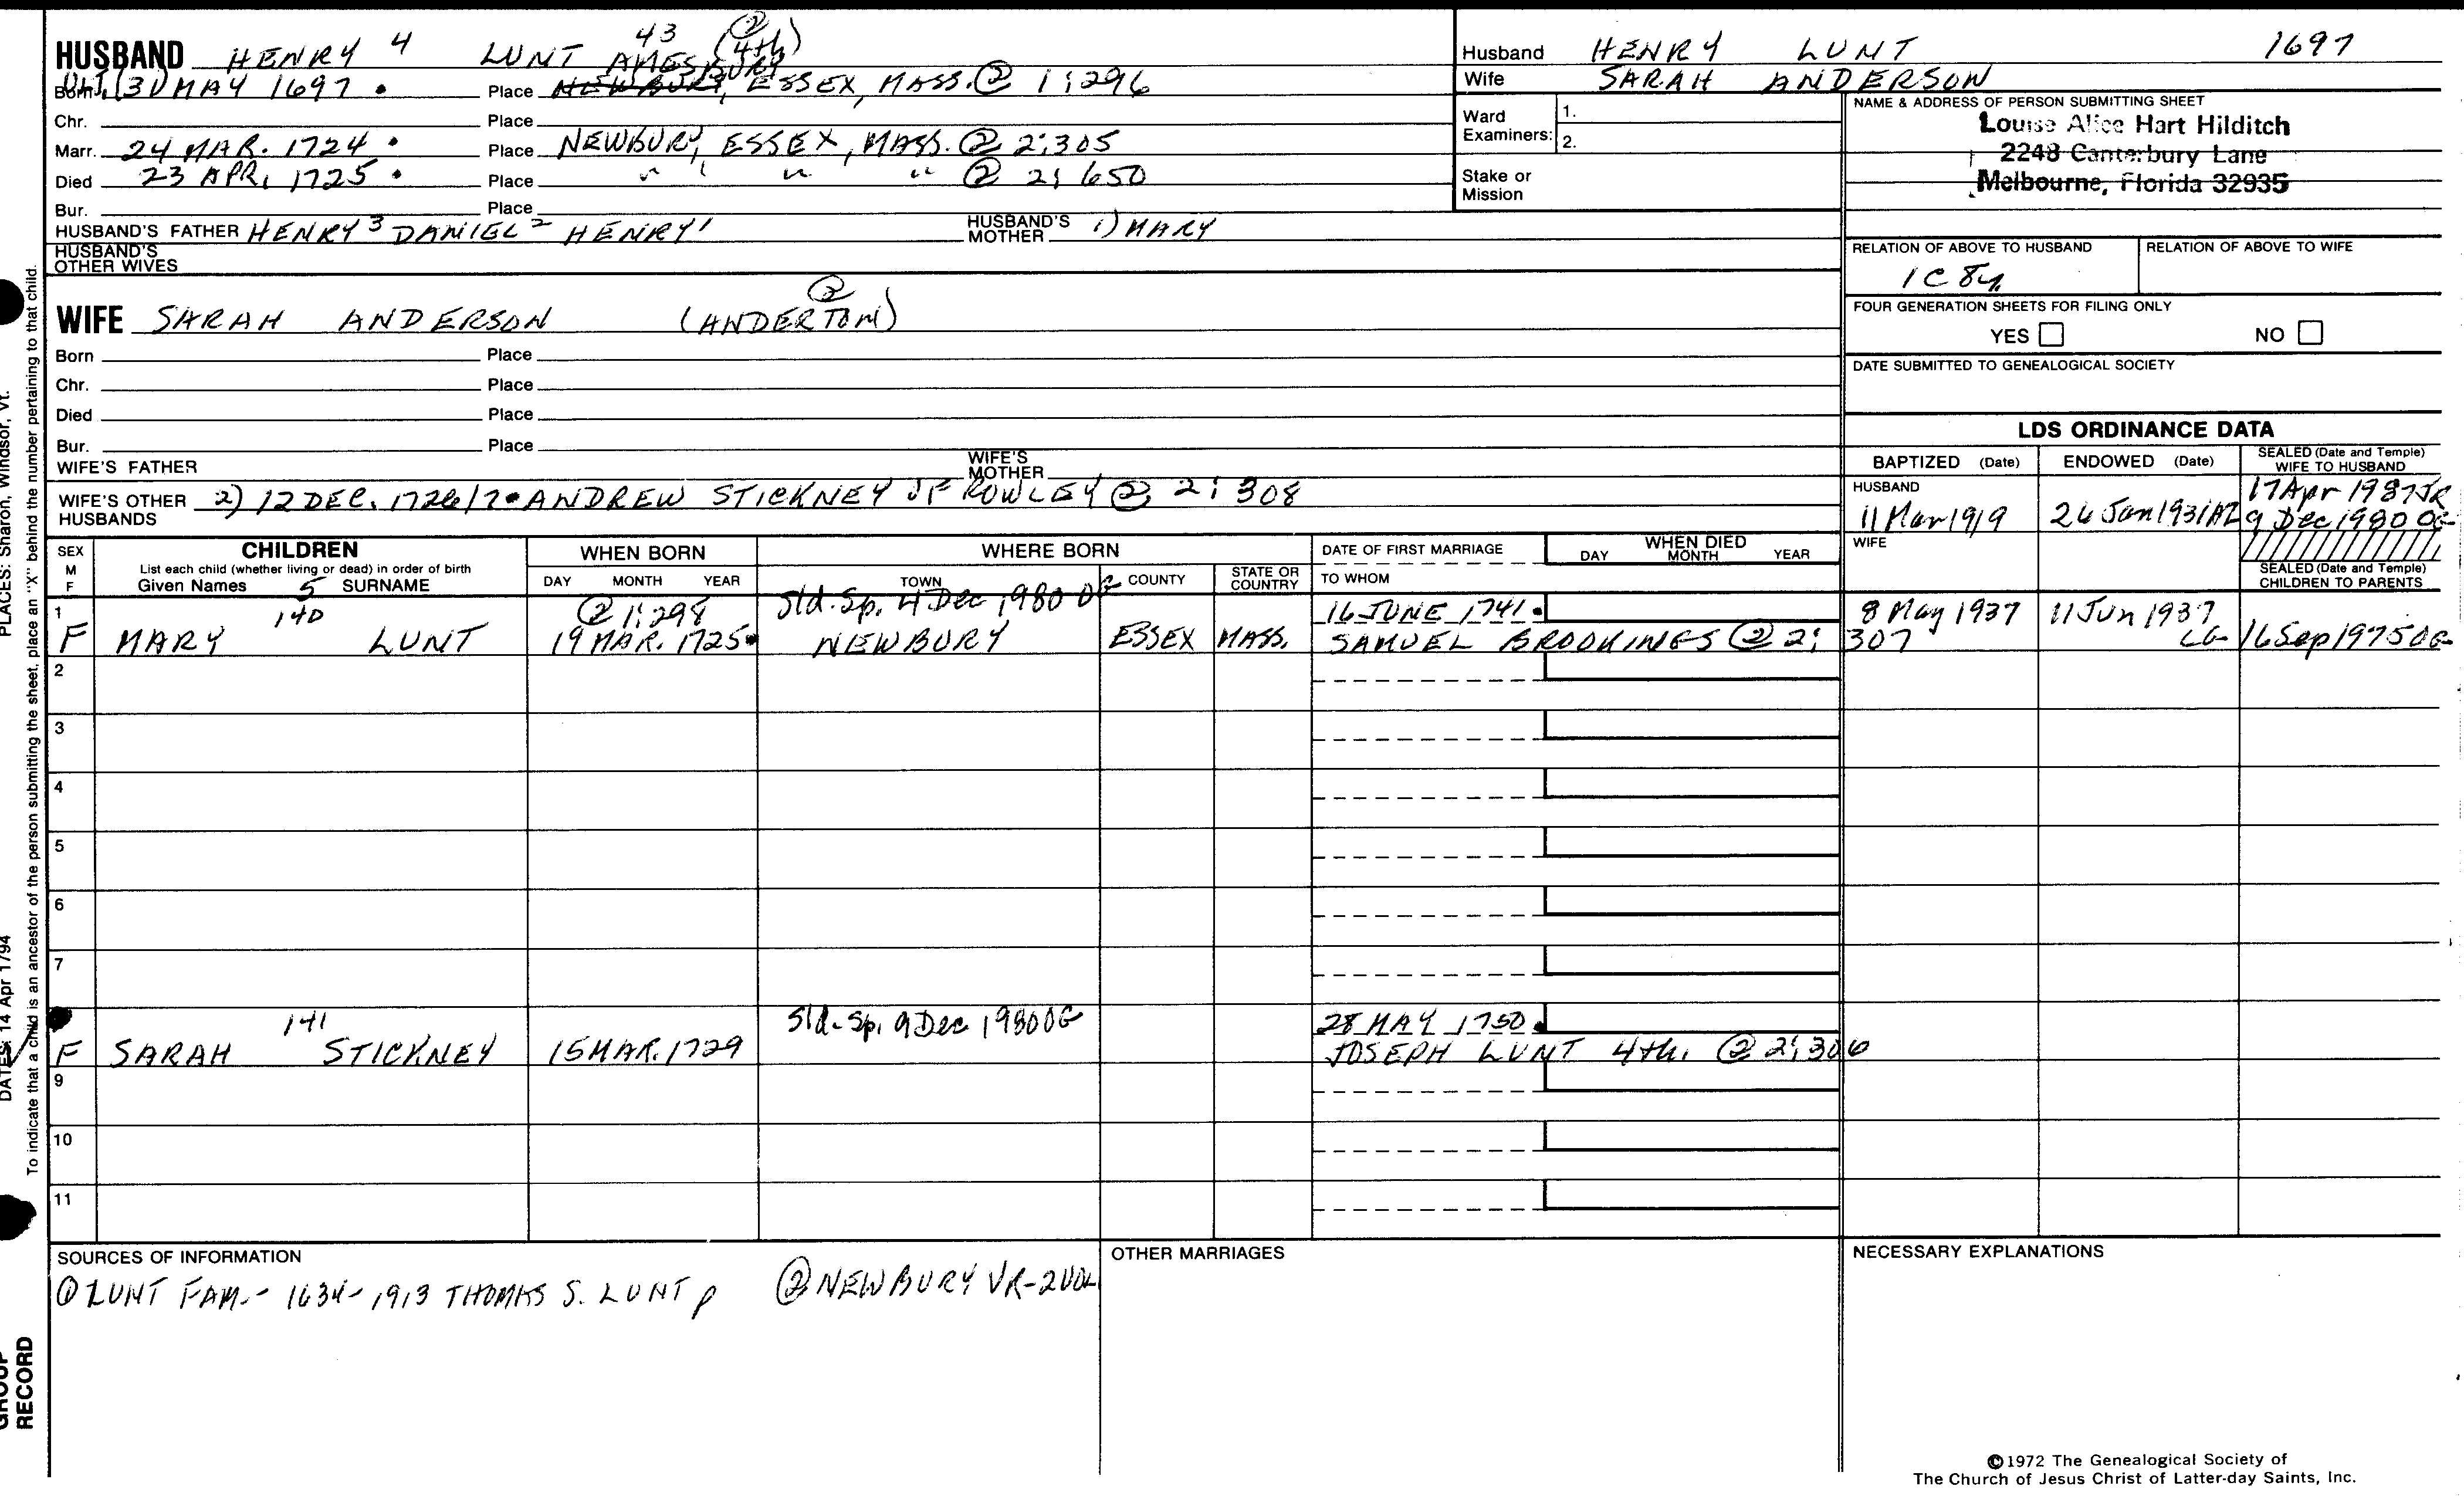 HUSBAND HENRY 4 LUNT 43 (4th) ②
Born (3) MAY 1697 Place AMESBURY NEWBURY, ESSEX, MASS. ② 1:296
Chr. Place
Marr. 24 MAR. 1724 Place NEWBURY, ESSEX, MASS. ② 2:305
Died 23 APR. 1725 Place " " " " ② 2:650
Bur. Place
HUSBAND'S FATHER HENRY 3 DANIEL 2 HENRY 1 HUSBAND'S MOTHER 1) MARY
HUSBAND'S OTHER WIVES
WIFE SARAH ANDERSON (ANDERTON) ②
Born Place
Chr. Place
Died Place
Bur. Place
WIFE'S FATHER WIFE'S MOTHER
WIFE'S OTHER HUSBANDS 2) 12 DEC. 1726/7 ANDREW STICKNEY OF ROWLEY ② 2:308
Husband HENRY LUNT 1697
Wife SARAH ANDERSON
Ward Examiners: 1.
2.
Stake or Mission
NAME & ADDRESS OF PERSON SUBMITTING SHEET
Louise Alice Hart Hilditch
2248 Canterbury Lane
Melbourne, Florida 32935
RELATION OF ABOVE TO HUSBAND RELATION OF ABOVE TO WIFE
1C 8
FOUR GENERATION SHEETS FOR FILING ONLY
YES NO
DATE SUBMITTED TO GENEALOGICAL SOCIETY
LDS ORDINANCE DATA
BAPTIZED (Date) ENDOWED (Date) SEALED (Date and Temple) WIFE TO HUSBAND
HUSBAND 17 Apr 1937
11 Mar 1919 26 Jan 1931 AZ 9 Dec 1980 OG
WIFE
SEALED (Date and Temple) CHILDREN TO PARENTS
SEX M F CHILDREN WHEN BORN WHERE BORN DATE OF FIRST MARRIAGE WHEN DIED
List each child (whether living or dead) in order of birth DAY MONTH YEAR
Given Names 5 SURNAME DAY MONTH YEAR TOWN COUNTY STATE OR COUNTRY TO WHOM
1 140 ② 1:298 Sld. Sp. 4 Dec 1980 OG 16 JUNE 1741 8 May 1937 11 Jun 1937
F MARY LUNT 19 MAR. 1725 NEWBURY ESSEX MASS. SAMUEL BROOKINGS ② 2: 307 LG 16 Sep 1975 OG
2
3
4
5
6
7
141 Sld. Sp. 9 Dec 1980 OG 28 MAY 1750
F SARAH STICKNEY 15 MAR. 1729 JOSEPH LUNT 4th. ② 2:306
9
10
11
SOURCES OF INFORMATION OTHER MARRIAGES NECESSARY EXPLANATIONS
① LUNT FAM.- 1634-1913 THOMAS S. LUNT p ② NEWBURY VR-2VOL
©1972 The Genealogical Society of
The Church of Jesus Christ of Latter-day Saints, Inc.
PLACES: Sharon, Windsor, Vt.
DATES: 14 Apr 1794
To indicate that a child is an ancestor of the person submitting the sheet, place an "X" behind the number pertaining to that child.
GROUP
RECORD